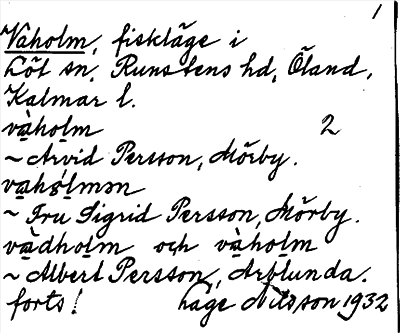 1
Vaholm, fiskläge i
Löt sn, Runstens hd, Öland,
Kalmar l.
vàholm 2
~ Arvid Persson, Mörby.
vahólmən
~ Fru Sigrid Persson, Mörby.
vàdholm och vàholm
~ Albert Persson, Arblunda.
forts! Håge Nilsson 1932